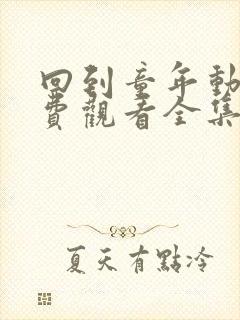 回到童年動
費觀看全集
夏天有點冷